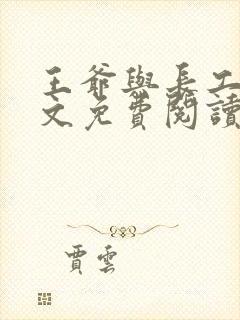 王爺與長工
文免費閱讀
賈雲